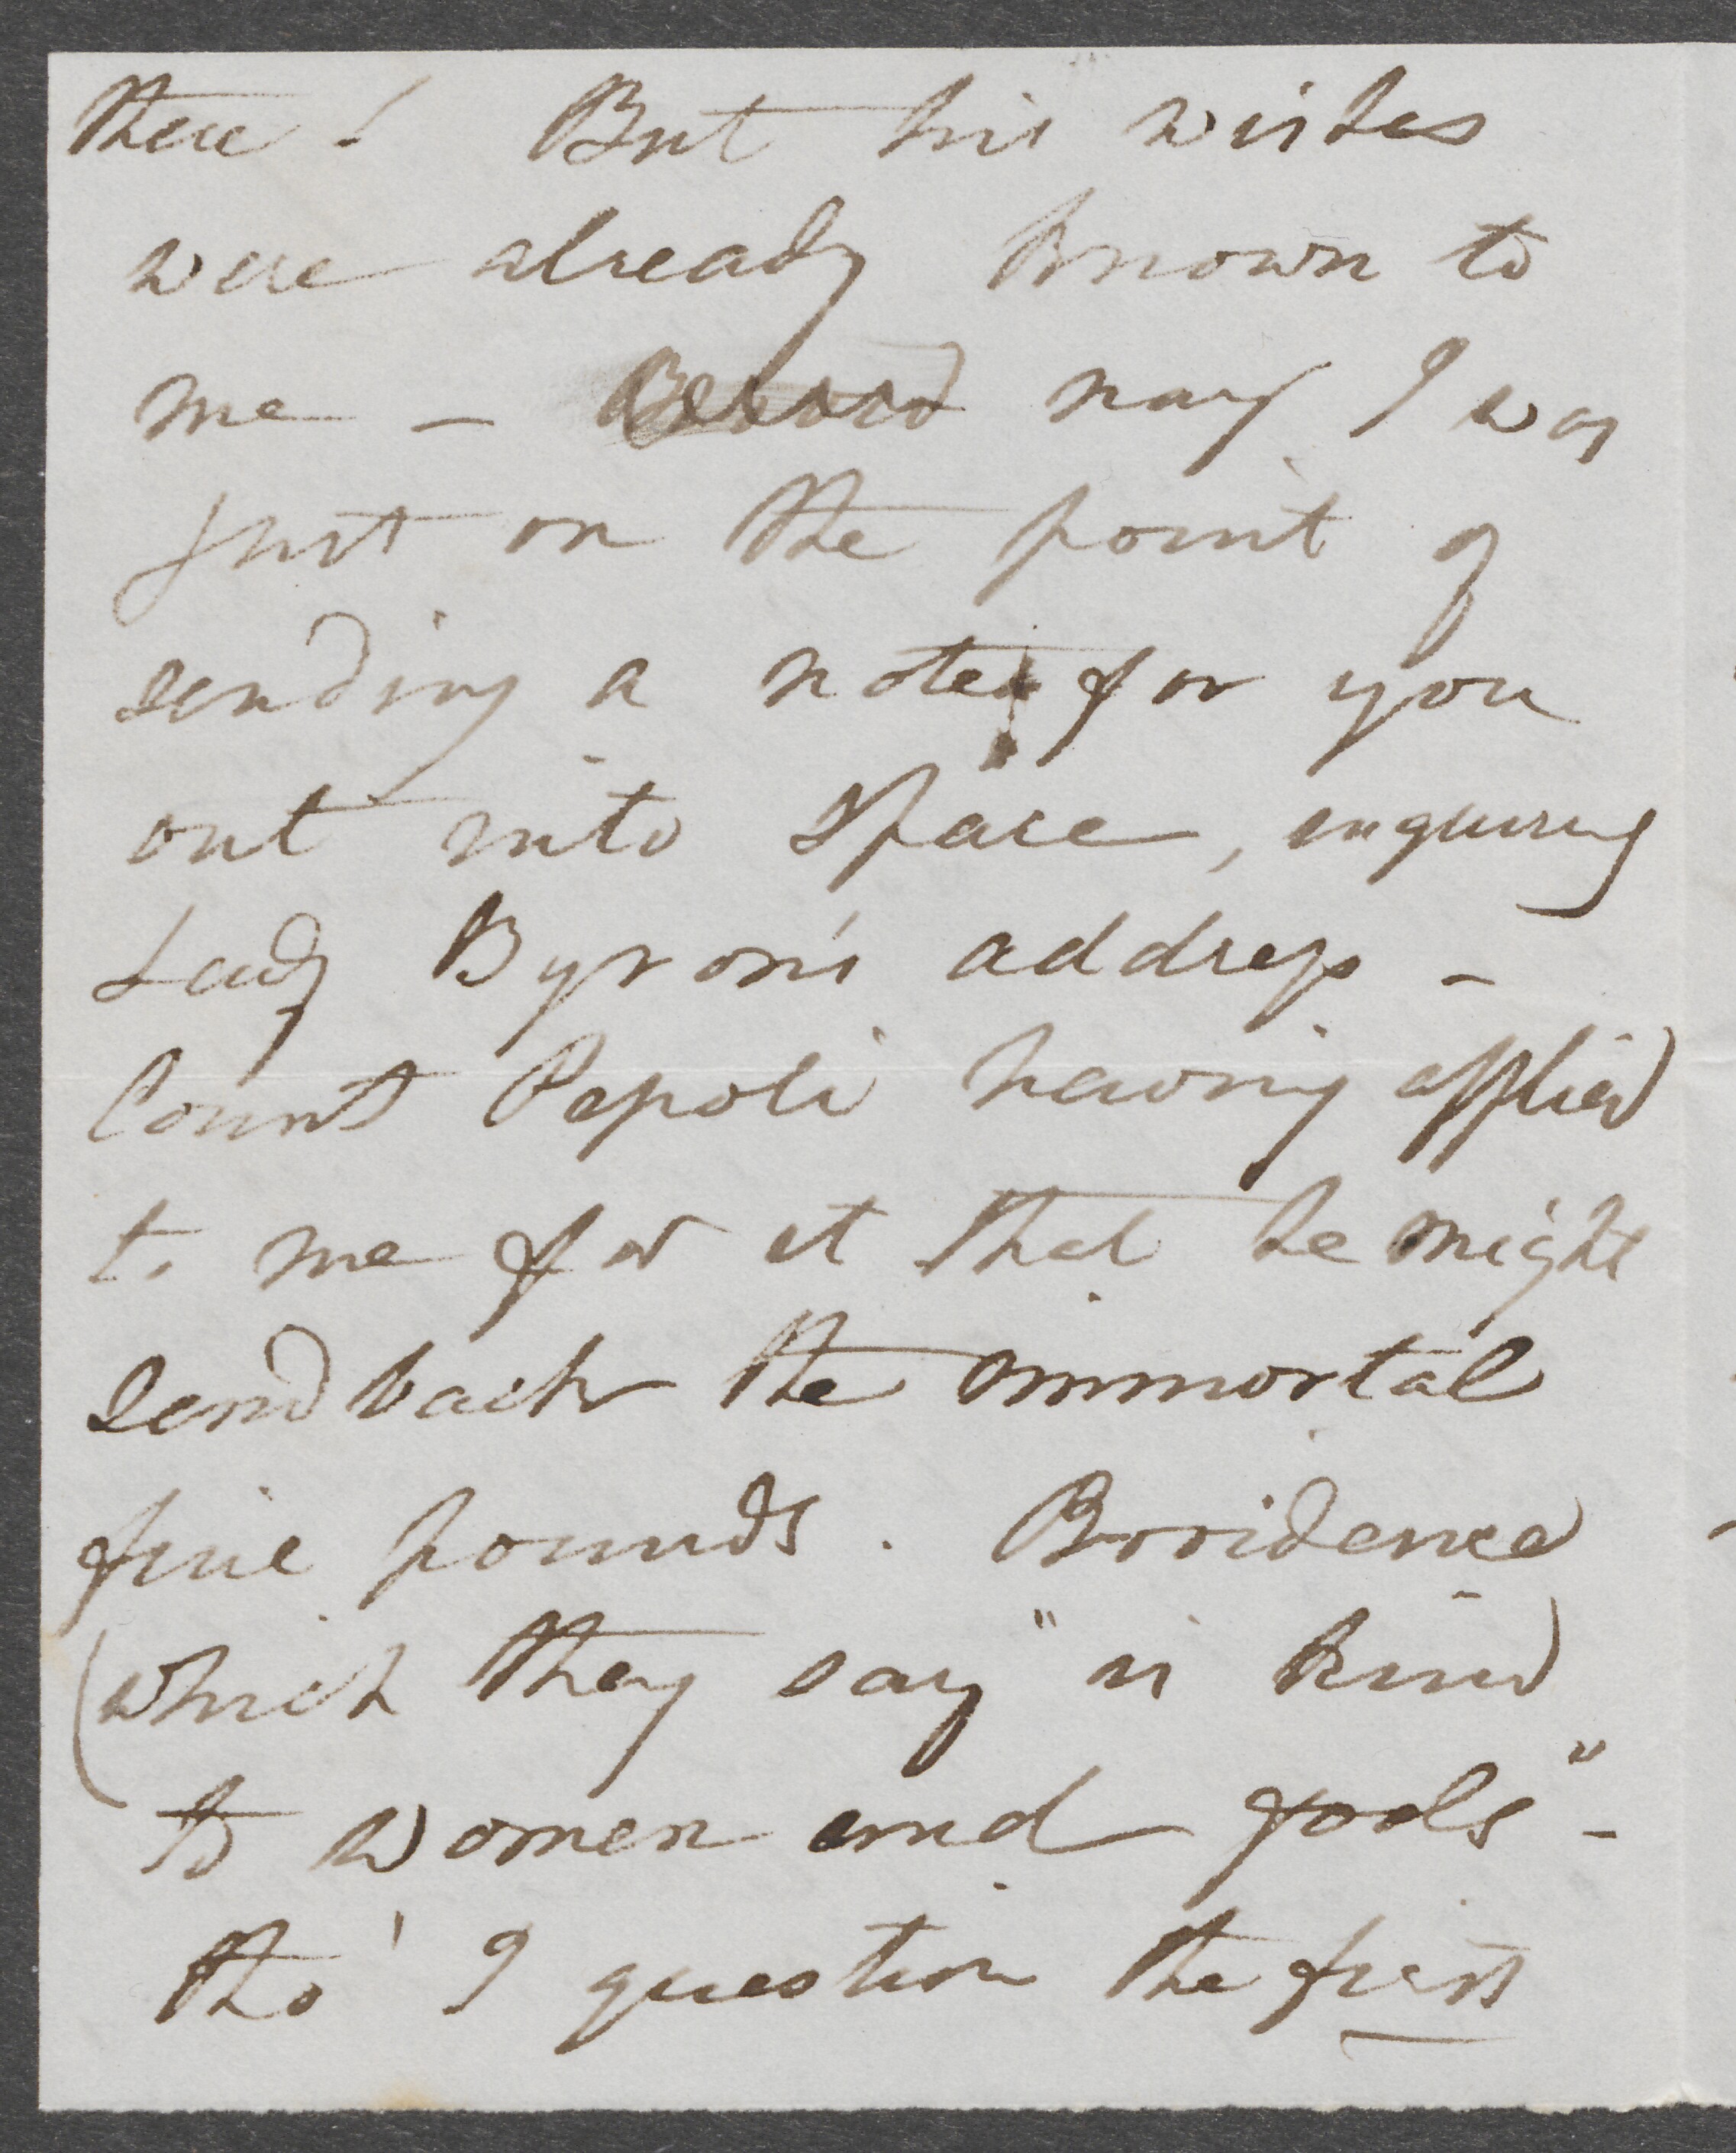 there! But his wishes
were already known to
me – nay I was
just on the point of
sending a note for you
out into space, enquiring
Lady Byron's address –
Count Pepoli having applied
to me for it that he might
send back the immortal
five pounds. Providence
(which they say "is kind
to women and fools" –
tho' I question the first